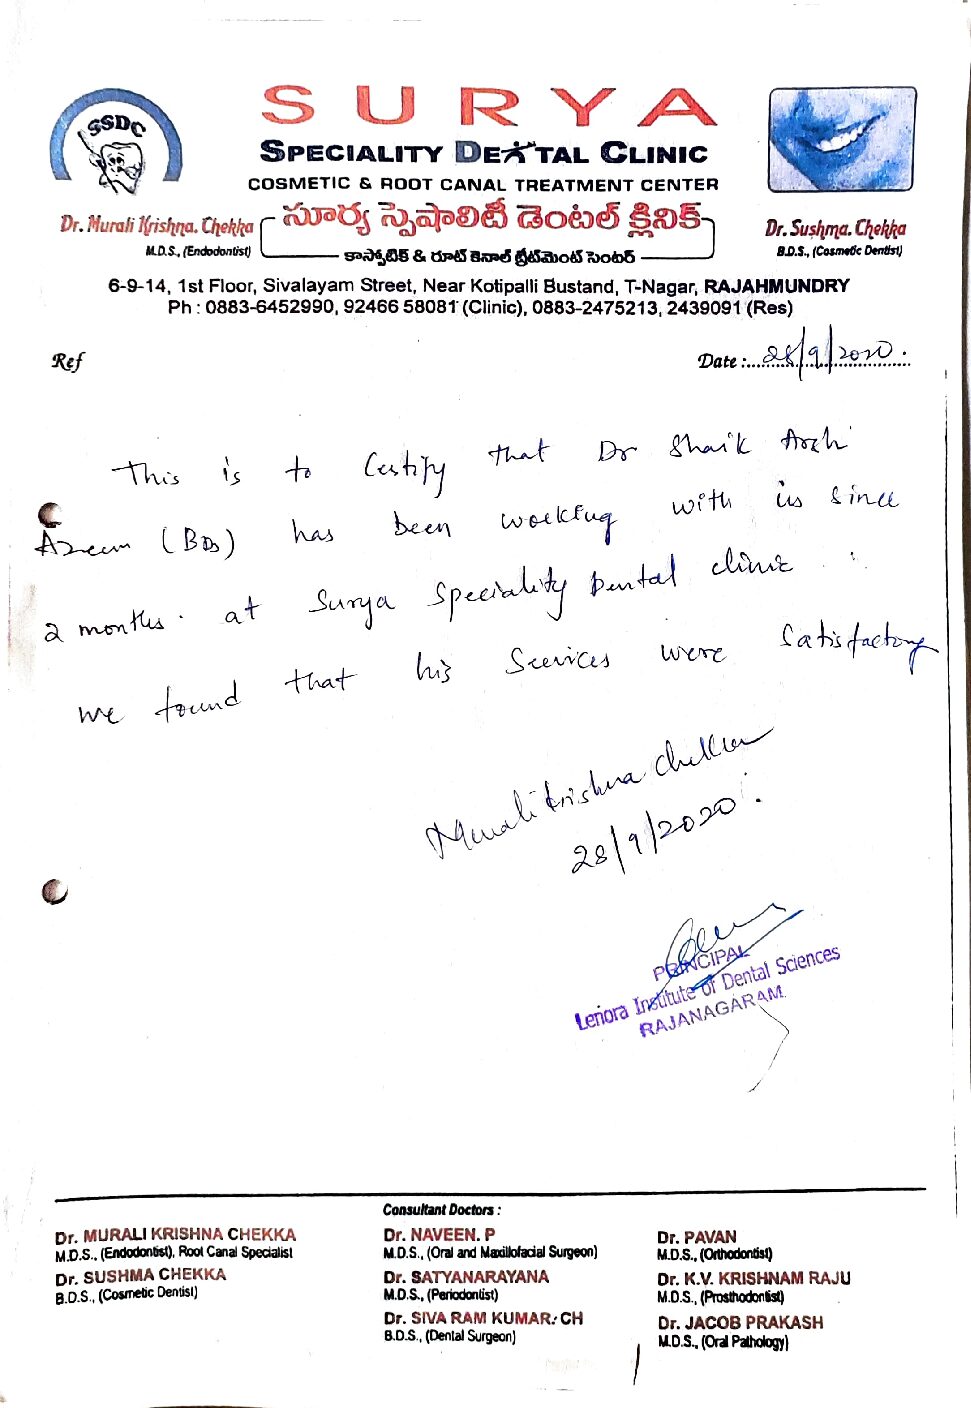 SSDC
SURYA
SPECIALITY DENTAL CLINIC
COSMETIC & ROOT CANAL TREATMENT CENTER
Dr. Murali Krishna. Chekka
M.D.S., (Endodontist)
సూర్య స్పెషాలిటీ డెంటల్ క్లినిక్
కాస్మోటిక్ & రూట్ కెనాల్ ట్రీట్‌మెంట్ సెంటర్
Dr. Sushma. Chekka
B.D.S., (Cosmetic Dentist)
6-9-14, 1st Floor, Sivalayam Street, Near Kotipalli Bustand, T-Nagar, RAJAHMUNDRY
Ph : 0883-6452990, 92466 58081 (Clinic), 0883-2475213, 2439091 (Res)
Ref
Date :.. 28/9/2020.
This is to Certify that Dr Shaik Arshi
Azeem (BDS) has been working with us since
2 months. at Surya Speciality Dental clinic :
we found that his Services were Satisfactory
Muralikrishna Chekka
28/9/2020.
PRINCIPAL
Lenora Institute of Dental Sciences
RAJANAGARAM.
Consultant Doctors :
Dr. MURALI KRISHNA CHEKKA
M.D.S., (Endodontist), Root Canal Specialist
Dr. SUSHMA CHEKKA
B.D.S., (Cosmetic Dentist)
Dr. NAVEEN. P
M.D.S., (Oral and Maxillofacial Surgeon)
Dr. SATYANARAYANA
M.D.S., (Periodontist)
Dr. SIVA RAM KUMAR. CH
B.D.S., (Dental Surgeon)
Dr. PAVAN
M.D.S., (Orthodontist)
Dr. K.V. KRISHNAM RAJU
M.D.S., (Prosthodontist)
Dr. JACOB PRAKASH
M.D.S., (Oral Pathology)